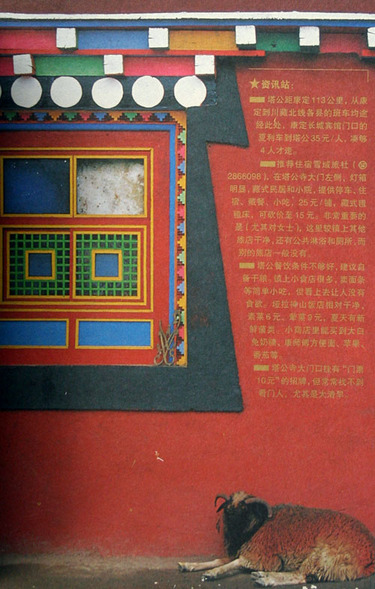 ★资讯站：
塔公距康定113公里，从康
定到川藏北线各县的班车均途
经此处，康定长城宾馆门口的
夏利车到塔公35元/人，凑够
4人才走。
推荐住宿雪城旅社（
2866098），在塔公寺大门左侧，灯箱
明显，藏式民居和小院，提供停车、住
宿、藏餐、小吃，25元/铺，藏式画
程床，可砍价至15元，非常重要的
是（尤其对女士），这里较镇上其他
旅店干净，还有公共淋浴和厕所，而
别的旅店一般没有。
塔公餐饮条件不够好，建议自
备干粮，镇上小食店很多，卖面条
等简单小吃，但看上去让人没有
食欲。
相对干净，
素菜6元，荤菜9元，夏天有新
鲜蔬菜，小商店里能买到大白
兔奶糖、康师傅方便面、苹果、
番茄等。
塔公寺大门口挂有“门票
10元”的招牌，但常常找不到
看门人，尤其是大清早。